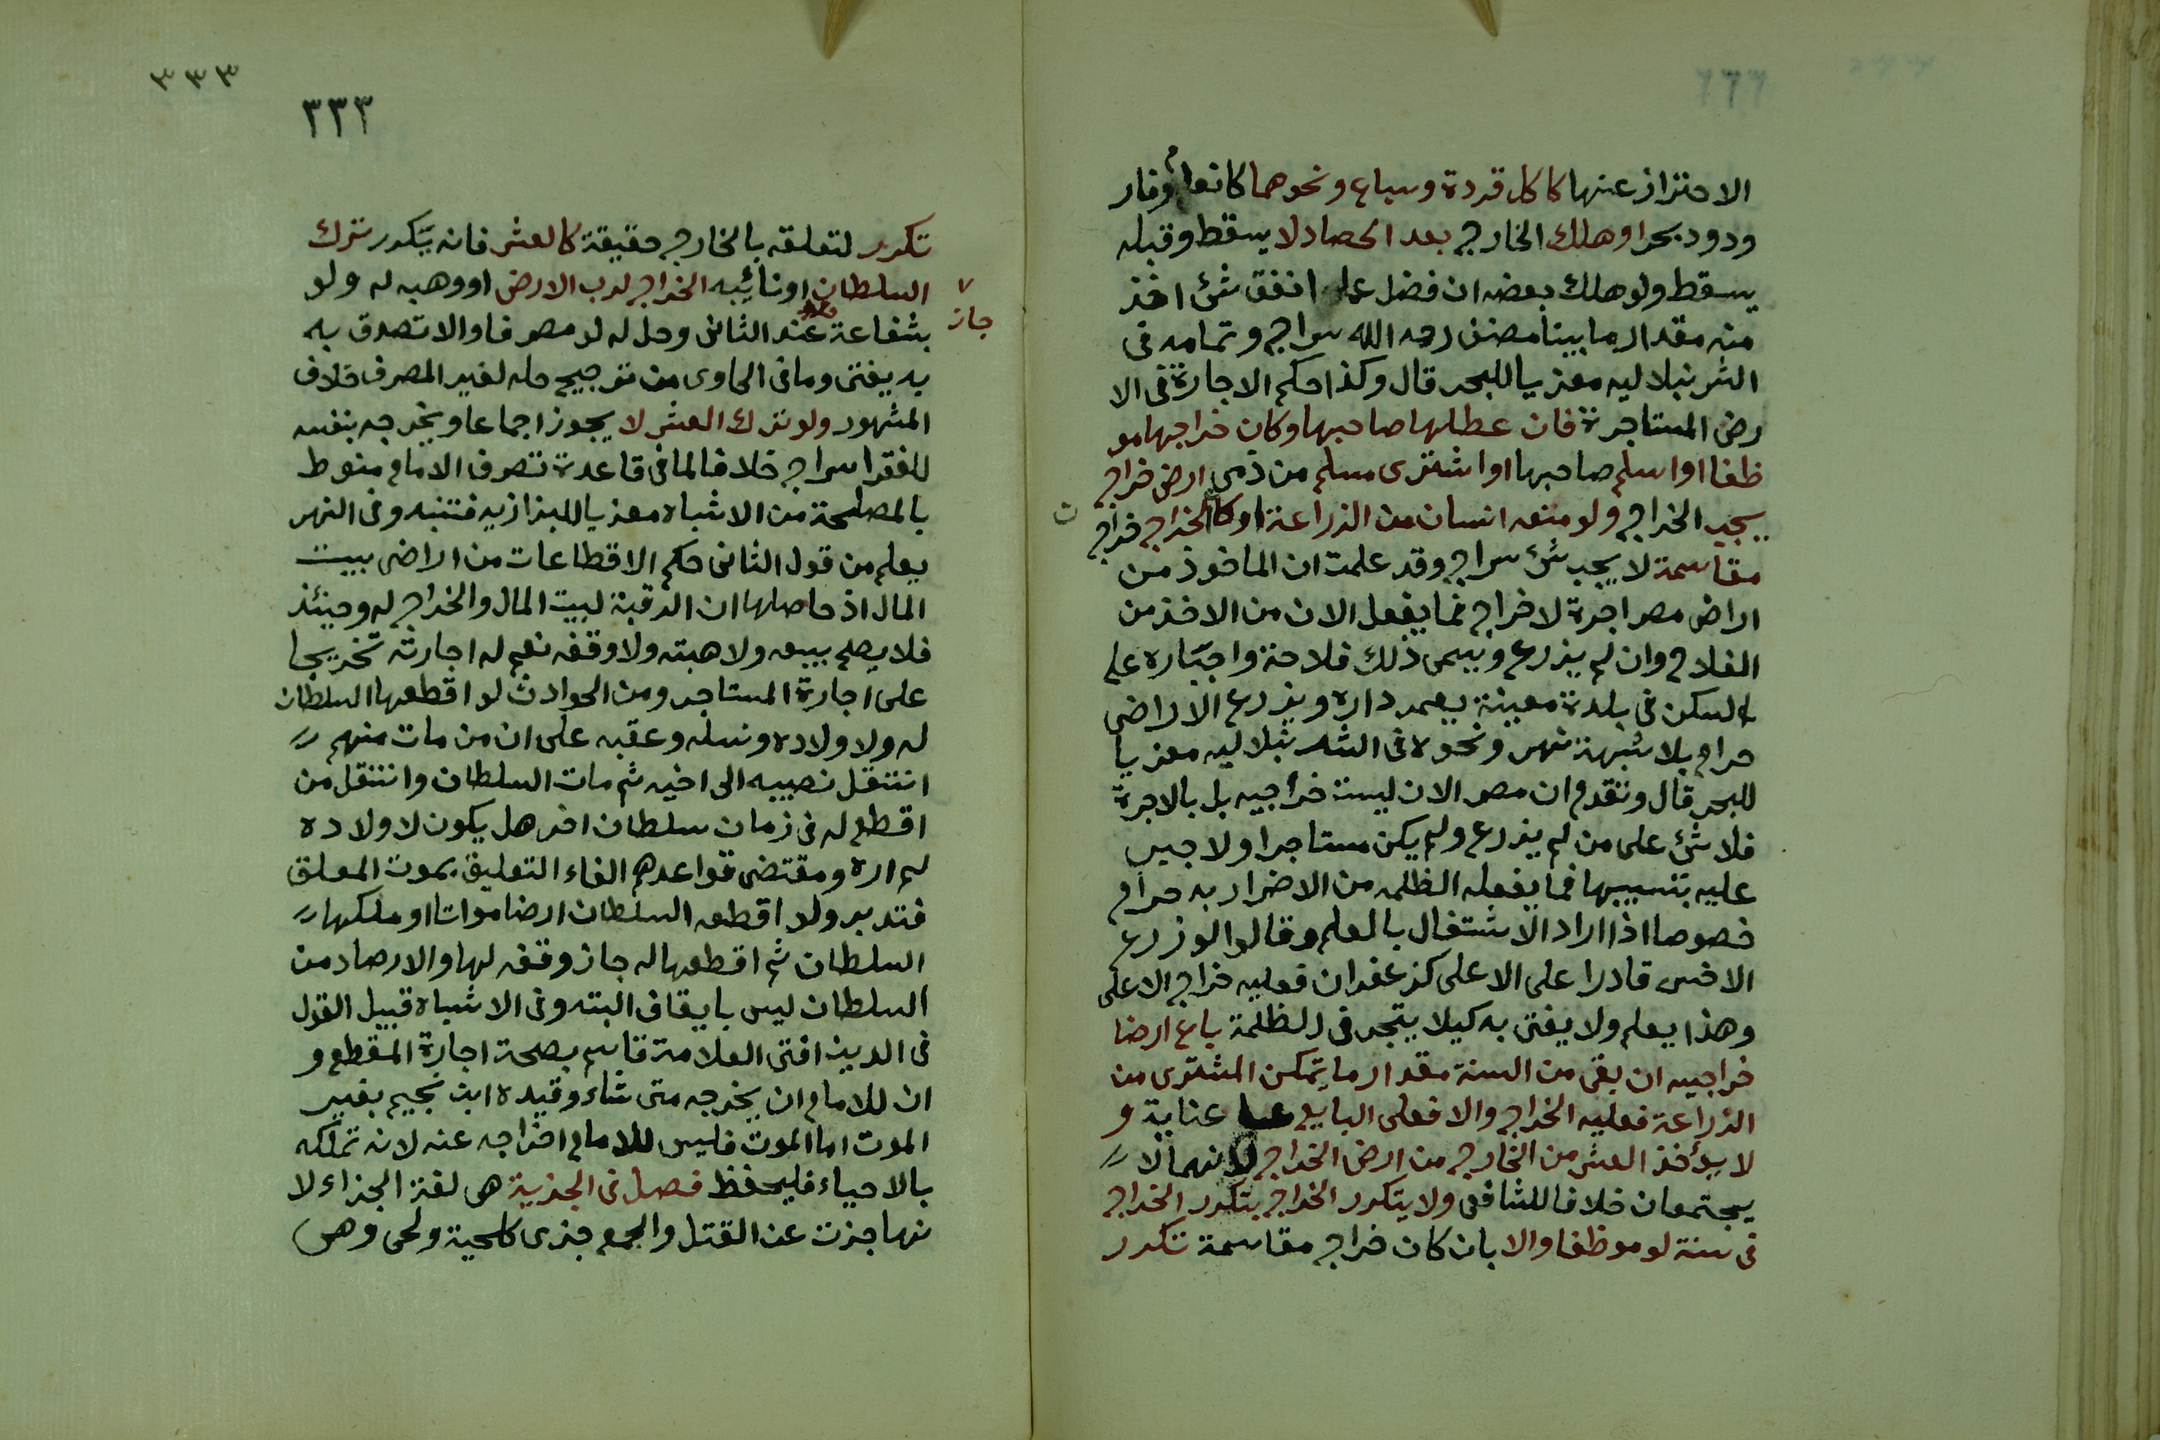 الاحتراز عنها كاكل قردة وسباع ونحوهما كانعام وفار
ودود بحر اوهلك الخارج بعد الحصاد لا يسقط وقبله
يسقط ولو هلك بعضه ان فضل عما انفق شئ اخذ
منه مقدار ما بينا مصنف رحمه الله سراج وتمامه فى
الشرنبلاليه معزيا للبحر قال وكذا حكم الاجارة فى الا
رض المستاجرة فان عطلها صاحبها وكان خراجها مو
ظفا او اسلم صاحبها او اشترى مسلم من ذمى ارض خراج
يجب الخراج ولو منعه انسان من الزراعة او كان الخراج خراج
مقاسمة لا يجب شئ سراج وقد علمت ان الماخوذ من
اراضى مصر اجرة لا خراج فما يفعل الان من الاخذ من
الفلاح وان لم يزرع ويسمى ذلك فلاحة واجباره على
السكن فى بلدة معينة يعمر داره ويزرع الاراضى
حرام بلا شبهة نهر ونحوه فى الشرنبلاليه معزيا
للبحر قال وتقدم ان مصر الان ليست خراجيه بل بالاجرة
فلا شئ على من لم يزرع ولم يكن مستاجرا ولا جبر
عليه بتسيبها فما يفعله الظلمه من الاضرار به حرام
خصوصا اذا اراد الاشتغال بالعلم وقالوا لو زرع
الاخس قادرا على الاعلى كزعفران فعليه خراج الاعلى
وهذا يعلم ولا يفتى به كيلا يتجر فى الظلمة باع ارضا
خراجيه ان بقى من السنة مقدار ما يتمكن المشترى من
الزراعة فعليه الخراج والا فعلى البايع عناية و
لا يؤخذ العشر من الخارج من ارض الخراج لانهما لا
يجتمعان خلافا للشافعى ولا يتكرر الخراج بتكرر الخراج
فى سنة لو موظفا والا بان كان خراج مقاسمة تكرر
٣٣٣
٣٣٣
تكرر لتعلقه بالخارج حقيقة كالعشر فانه يتكرر ترك
السلطان اونائيبه الخراج لرب الارض او وهبه له ولو
جاز
بشفاعة عند الثانى وحل له لو مصرفا والا تصدق به
به يفتى وما فى الحاوى من ترجيح حله لغير المصرف خلاف
المشهور ولو ترك العشر لا يجوز اجماعا ويخرجه بنفسه
للفقرا سراج خلافا لما فى قاعدة تصرف الامام منوط
بالمصلحة من الاشباه معزيا للبزازيه فتنبه وفى النهر
يعلم من قول الثانى حكم الاقطاعات من اراضى بيت
المال اذ حاصلها ان الرقبة لبيت المال والخراج له وحينئذ
فلا يصلح بيعه ولا هبته ولا وقفه نعم له اجارته تخريجا
على اجارة المستاجر ومن الحوادث لو اقطعها السلطان
له ولاولاده ونسله وعقبه على ان من مات منهم
انتقل نصيبه الى اخيه ثم مات السلطان وانتقل من
اقطع له فى زمان سلطان اخر هل يكون لاولاده
لم اره ومقتضى قواعدهم الغاء التعليق بموت المعلق
فتدبر ولو اقطعه السلطان ارضا مواتا او ملكها
السلطان ثم اقطعها له جاز وقفه لها والارصاد من
السلطان ليس بايقاف البته وفى الاشباه قبيل القول
فى الدين افتى العلامة قاسم بصحة اجارة المقطع و
ان للامام ان يخرجه متى شاء وقيده ابن نجيم بغير
الموت اما الموت فليس للامام اخراجه عنه لانه تملكه
بالاحياء فليحفظ فصل فى الجزية هى لغة الجزاء لا
نها جزت عن القتل والجمع جزى كلحية ولحى وهى